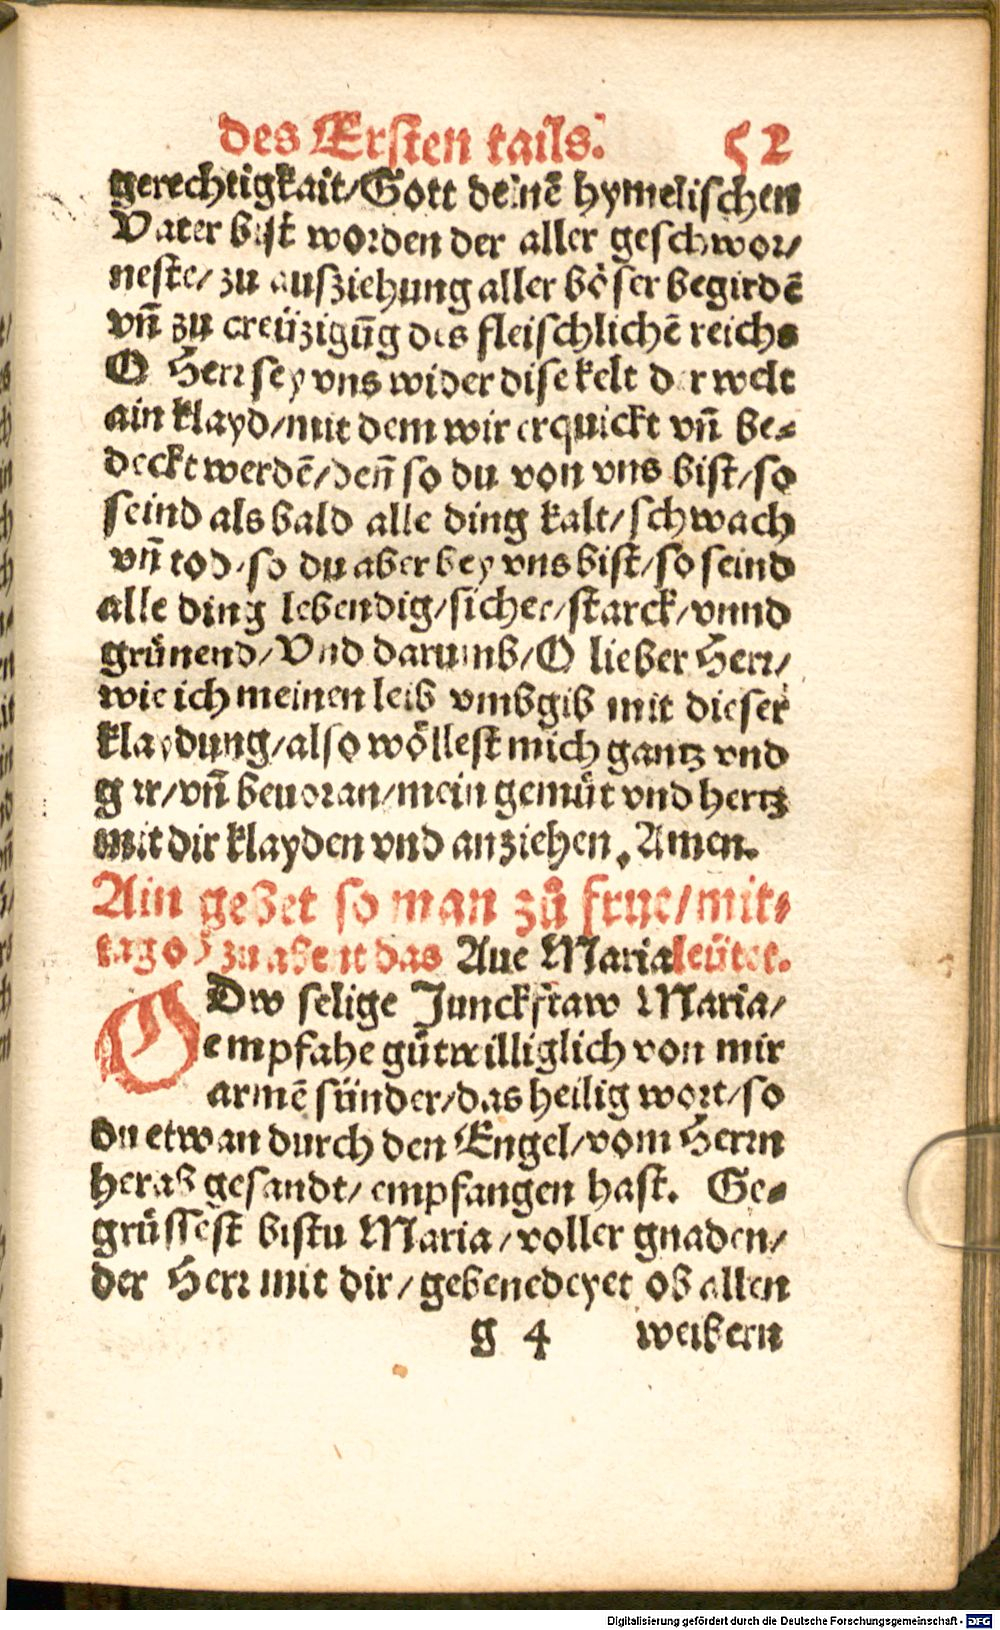 des Ersten tails. 52
gerechtigkait/Gott deinē hymelischen
Vater bist worden der aller geschwor/
neste/ zu ausziehung aller böser begirdē
vn̄ zu creüzigūg des fleischlichē reichs
O Herr sey vns wider dise kelt der welt
ain klayd/mit dem wir erquickt vn̄ be⸗
deckt werdē/den̄ so du von vns bist/so
seind als bald alle ding kalt/schwach
vn̄ tod/so du aber bey vns bist/so seind
alle ding lebendig/sicher/starck/vnnd
grünend/Vnd darumb/O lieber Herr/
wie ich meinen leib vmbgib mit dieser
klaydung/also wöllest mich gantz vnd
gar/vn̄ beuoran/mein gemüt vnd hertz
mit dir klayden vnd anziehen. Amen.
Ain gebet so man zů frue/mit⸗
tags zu abent das Aue Maria leütet.
O Dw selige Junckfraw Maria/
empfahe gütwilliglich von mir
armē sünder/das heilig wort/so
du etwan durch den Engel/vom Herrn
herab gesandt/ empfangen hast. Ge⸗
grüssest bistu Maria/voller gnaden/
der Herr mit dir/gebenedeyet ob allen
g 4 weibern
Digitalisierung gefördert durch die Deutsche Forschungsgemeinschaft - DFG